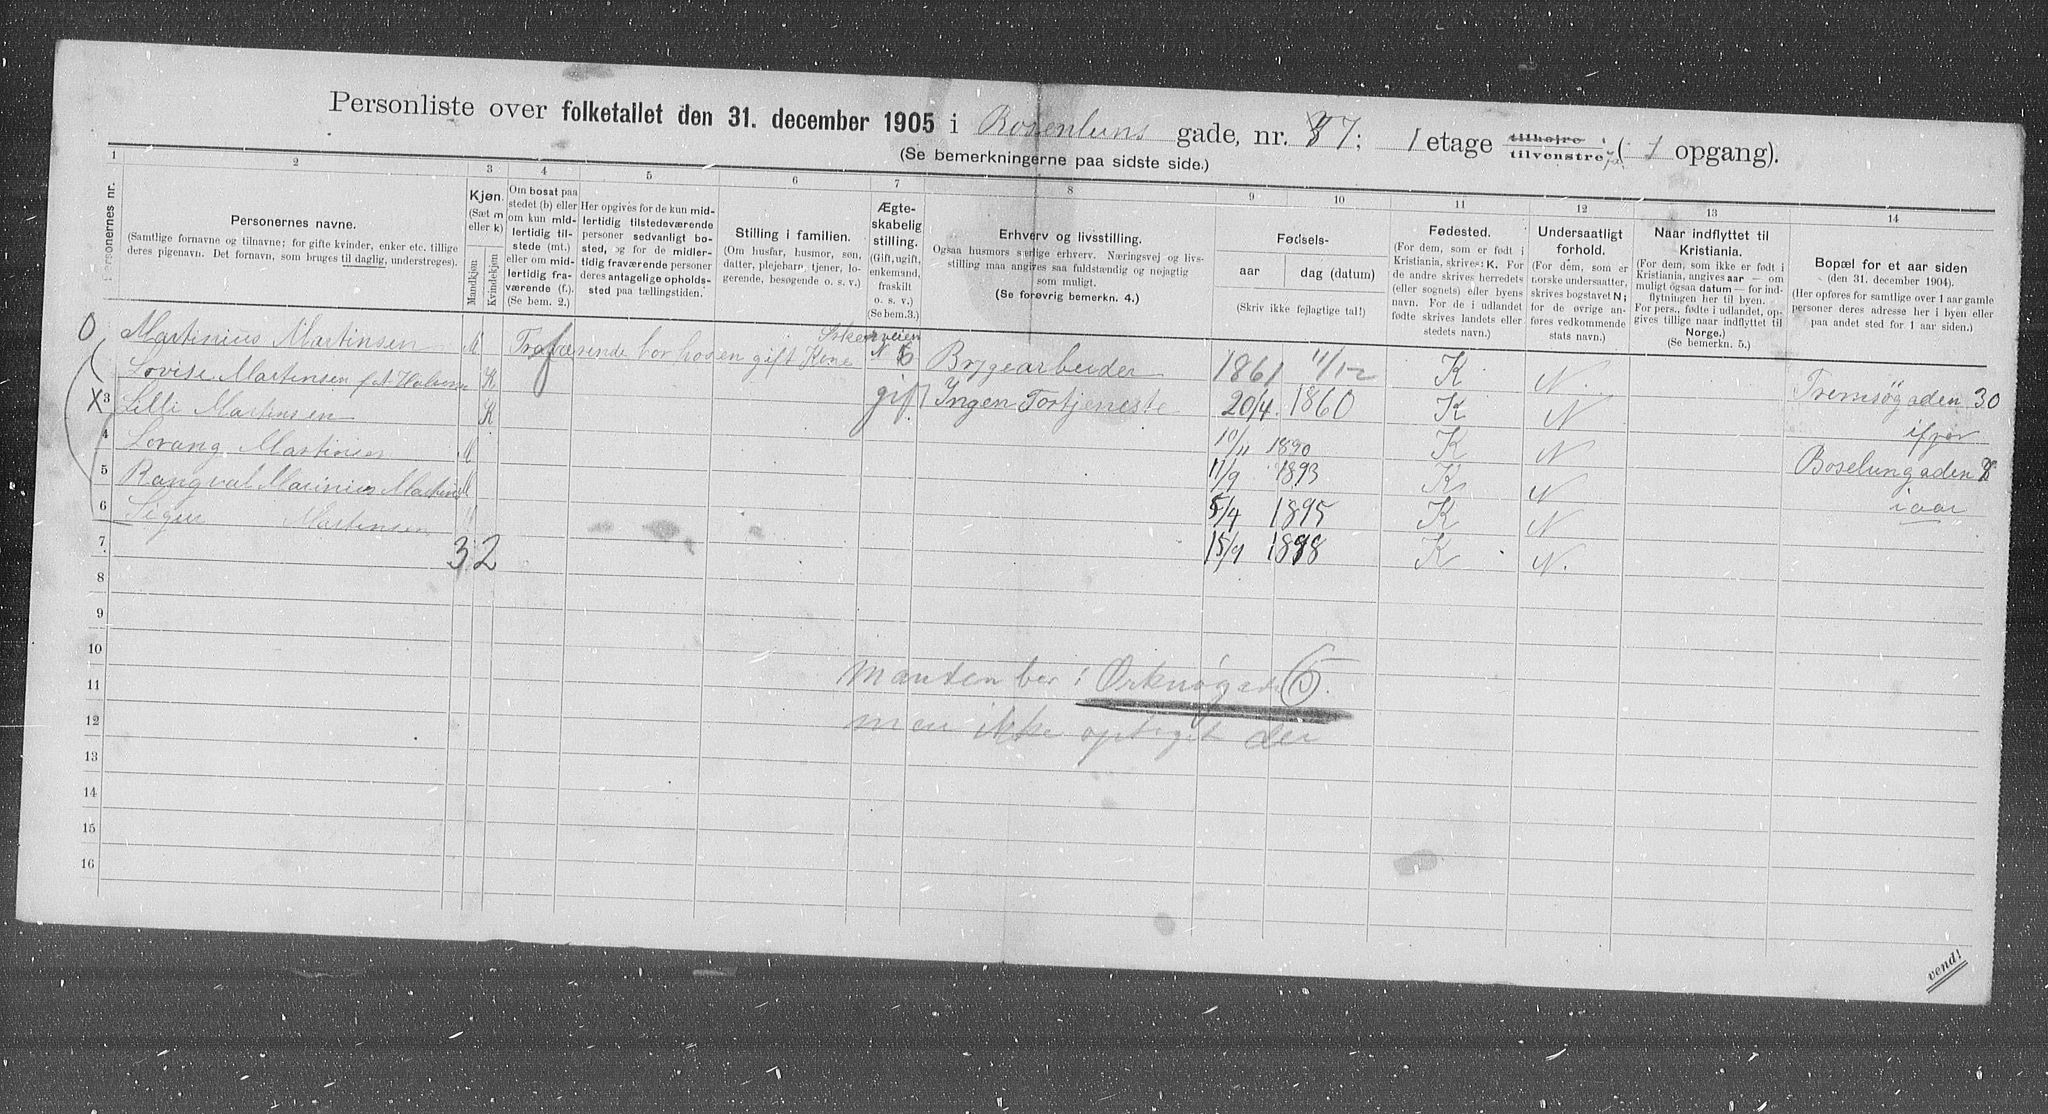 Personliste over folketallet den 31. december 1905 i Rosenluns gade, nr. 7; 1 etage tilhøjre tilvenstre (1 opgang).
(Se bemerkningerne paa sidste side.)
1 2 3 4 5 6 7 8 9 10 11 12 13 14
Personernes nr.
Personernes navne.
(Samtlige fornavne og tilnavne; for gifte kvinder, enker etc. tillige deres pigenavn. Det fornavn, som bruges til daglig, understreges).
Kjøn.
(Sæt m eller k)
Mandkjøn
Kvindekjøn
Om bosat paa stedet (b) eller om kun midlertidig tilstede (mt.) eller om midlertidig fraværende (f.). (Se bem. 2.)
Her opgives for de kun midlertidig tilstedeværende personer sedvanlig bosted, og for de midlertidig fraværende personer deres antagelige opholdssted paa tællingstiden.
Stilling i familien.
(Om husfar, husmor, søn, datter, plejebarn, tjener, logerende, besøgende o. s. v.)
Ægteskabelig stilling.
(Gift, ugift, enkemand, fraskilt o. s. v.)
(Se bem.3.)
Erhverv og livsstilling.
Ogsaa husmors særlige erhverv. Næringsvej og livsstilling maa angives saa fuldstændig og nøjagtig som muligt.
(Se forøvrig bemerkn. 4.)
Fødsels-
aar
dag (datum)
(Skriv ikke fejlagtige tal!)
Fødested.
(For dem, som er født i Kristiania, skrives: K. For de andre skrives herredets (eller sognets) eller byens navn. For de i udlandet fødte skrives landets eller stedets navn.)
Undersaatligt forhold.
(For dem, som er norske undersaatter, skrives bogstavet N; for de øvrige anføres vedkommende stats navn).
Naar indflyttet til Kristiania.
(For dem, som ikke er født i Kristiania, angives aar — om muligt ogsaa datum — for indflytningen her til byen. For pers., fødte i udlandet, opgives tillige naar indflyttet til Norge.)
(Se bemerkn. 5.)
Bopæl for et aar siden
(den 31. december 1904).
(Her opføres for samtlige over 1 aar gamle personer deres adresse her i byen eller paa andet sted for 1 aar siden.)
O Martinius Martinsen M gift Kone N 6 Brygearbeider 1861 11/12 K N. Tremsøgaden 30
Lovise Martensen K gift Ingen Fortjeneste 20/4. 1860 K N ifjor
X 3 Lilli Martensen K 10/11 1890 K N Boselungaden
4 Lorang Martinsen M 11/9 1893 K N iaar
5 Rangval Marinius M 5/4 1895 K N
6 Sigur Martensen M 15/9 1898 K N.
7 3 2
8
9
10
11 Manden bor i Ørknøgade 6.
12 men ikke optaget der
13
14
15
16
vend!